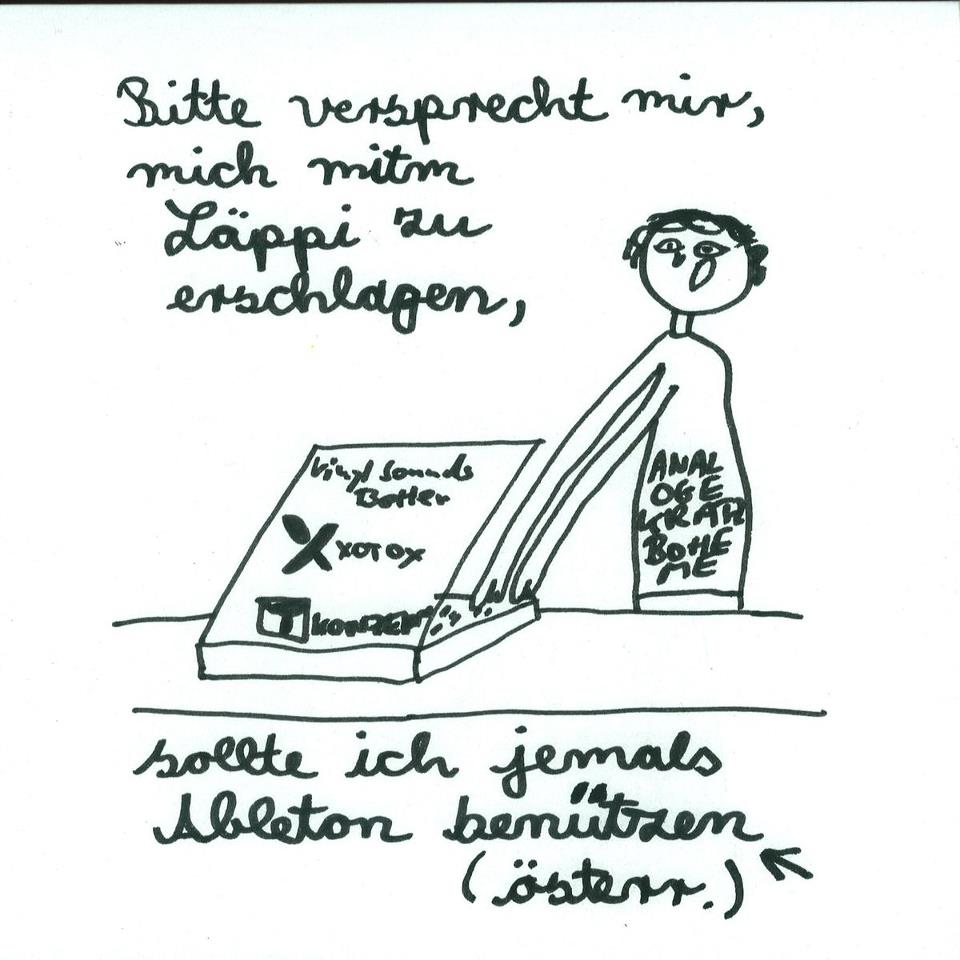 Bitte versprecht mir,
mich mitm
Läppi zu
erschlagen,
Vinyl sounds
Better
XOTOX
T KONZEN
ANAL
OGE
KRAH
BOHE
ME
sollte ich jemals
Ableton benützen
(österr.)